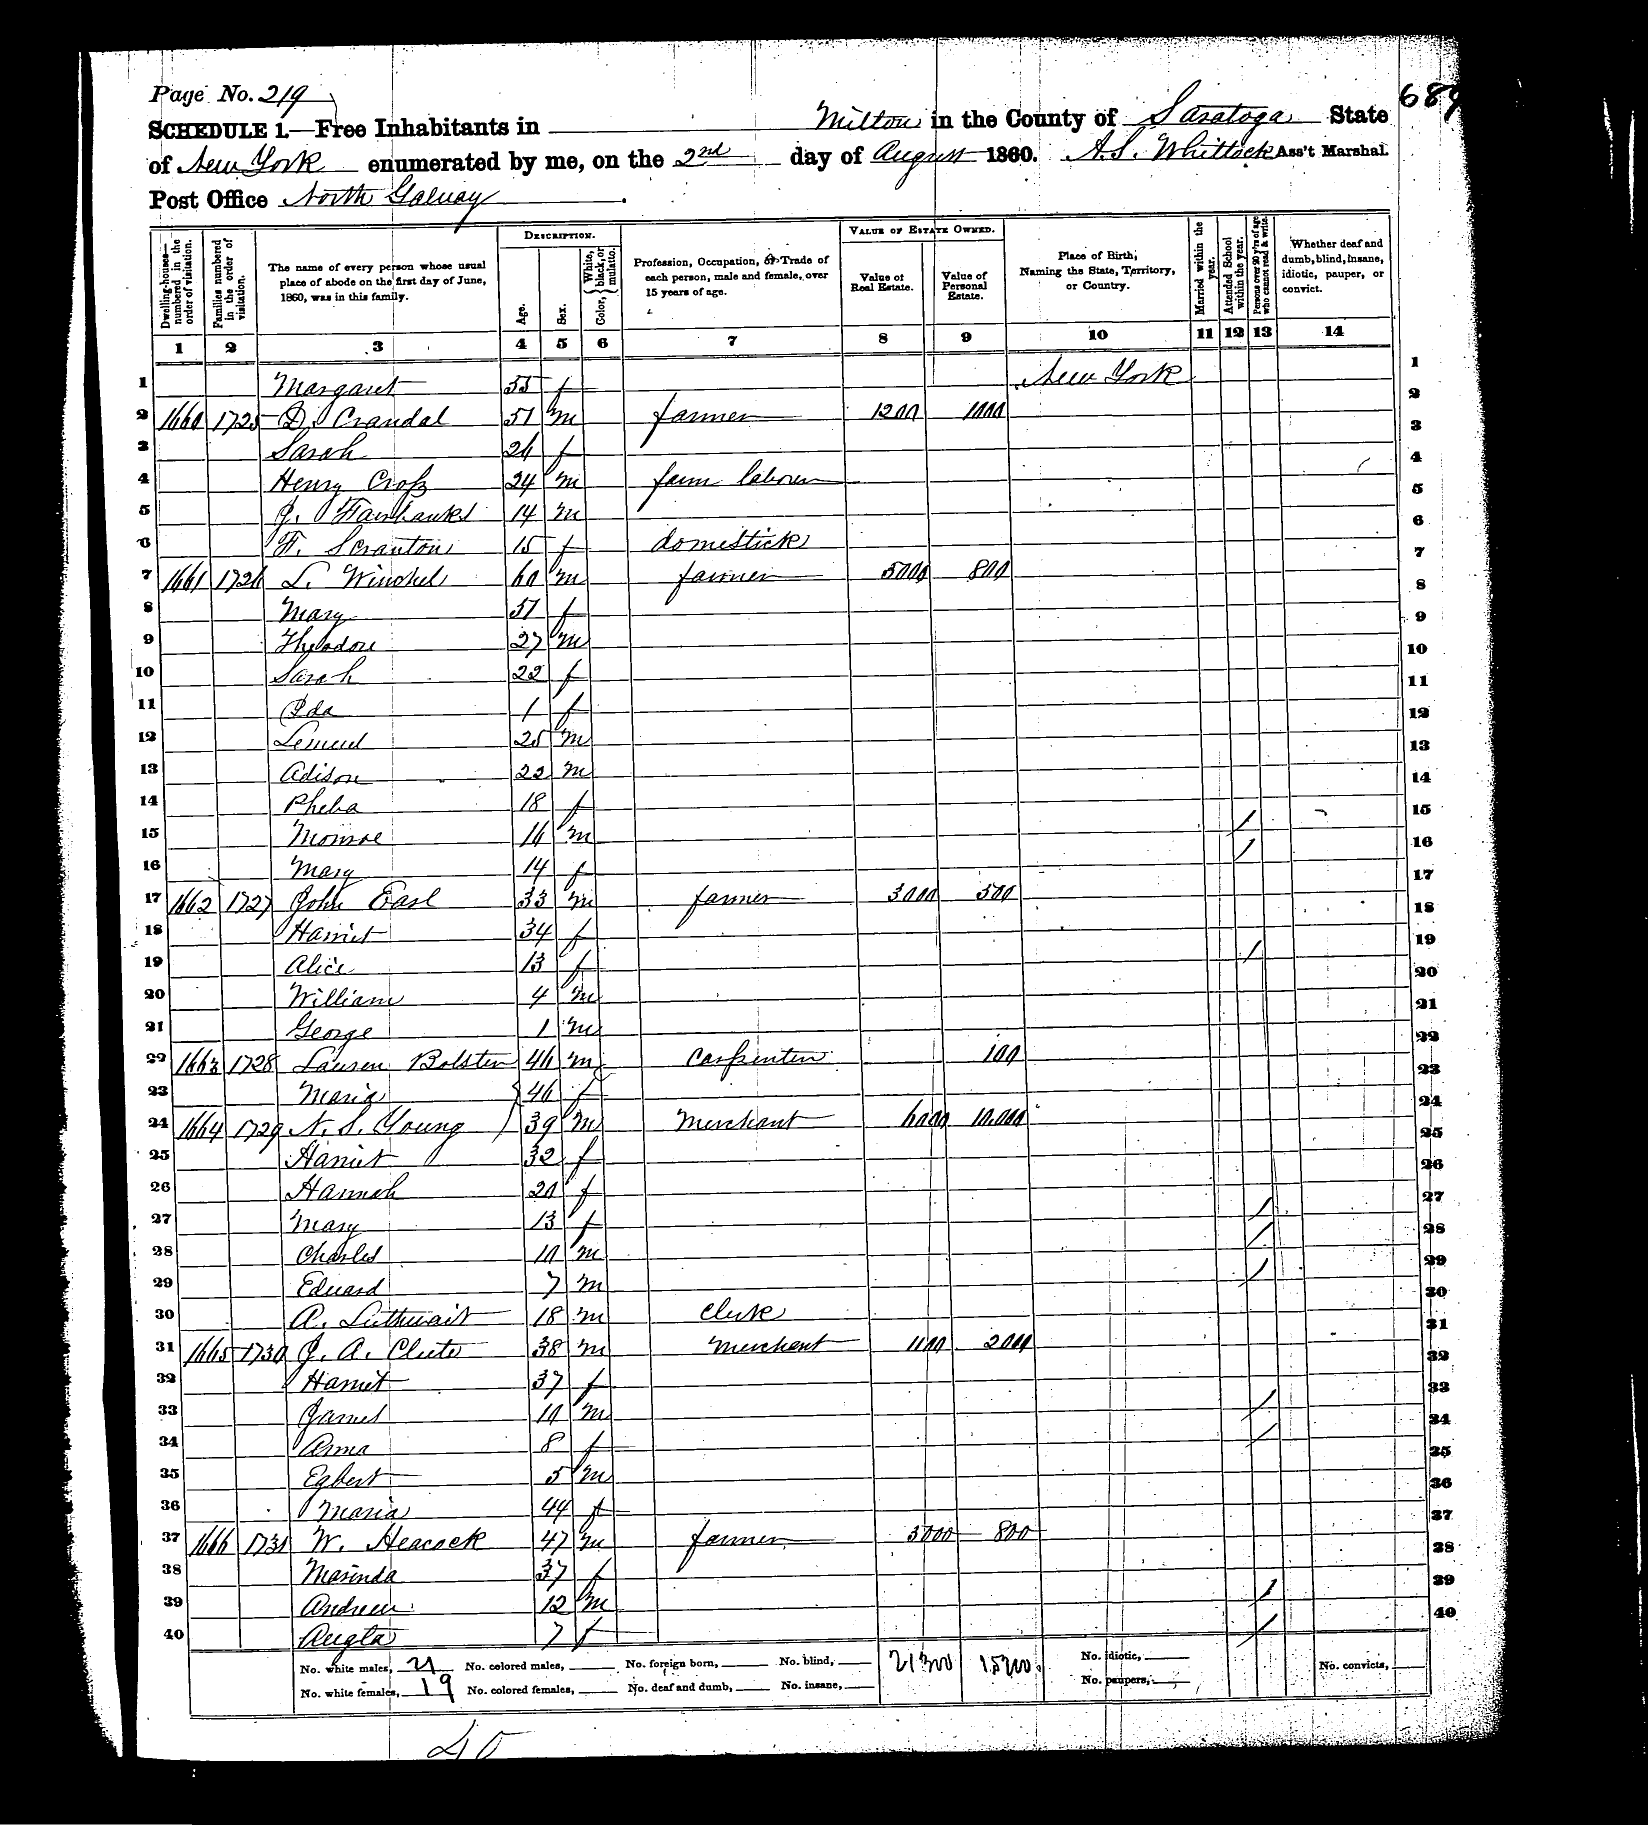 Page No. 219
689
SCHEDULE 1.—Free Inhabitants in Milton in the County of Saratoga State
of New York enumerated by me, on the 2nd day of August 1860. A.S. Whitlock Ass't Marshal.
Post Office North Galway
Dwelling-houses—numbered in the order of visitation.
Families numbered in the order of visitation.
The name of every person whose usual place of abode on the first day of June, 1860, was in this family.
DESCRIPTION.
Age.
Sex.
Color, { White, black, or mulatto.
Profession, Occupation, or Trade of each person, male and female, over 15 years of age.
VALUE OF ESTATE OWNED.
Value of Real Estate.
Value of Personal Estate.
Place of Birth, Naming the State, Territory, or Country.
Married within the year.
Attended School within the year.
Persons over 20 y'rs of age who cannot read & write.
Whether deaf and dumb, blind, insane, idiotic, pauper, or convict.
1 2 3 4 5 6 7 8 9 10 11 12 13 14
1 Margaret 55 f New York 1
2 1660 1725 D. Crandal 51 m farmer 1200 1000 2
3 Sarah 26 f 3
4 Henry Croß 24 m farm laborer 4
5 J. Fairbanks 14 m 5
6 F. Scranton 15 f domestick 6
7 1661 1726 L. Winchel 60 m farmer 5000 800 7
8 Mary 57 f 8
9 Theodore 27 m 9
10 Sarah 22 f 10
11 Ida 1 f 11
12 Lemuel 25 m 12
13 Adison 22 m 13
14 Pheba 18 f 14
15 Monroe 16 m / 15
16 Mary 14 f / 16
17 1662 1727 John Earl 33 m farmer 3000 500 17
18 Harriet 34 f 18
19 Alice 13 f / 19
20 William 4 m 20
21 George 1 m 21
22 1663 1728 Lauren Bolster 46 m Carpenter 100 22
23 Maria 46 f 23
24 1664 1729 N. S. Young 39 m Merchant 6000 10.000 24
25 Harriet 32 f 25
26 Hannah 20 f 26
27 Mary 13 f / 27
28 Charles 10 m / 28
29 Edward 7 m / 29
30 A. 18 m Clerk 30
31 1665 1730 J. A. Clute 38 m Merchant 1100 2000 31
32 Harriet 37 f 32
33 James 10 m / 33
34 Anna 8 f / 34
35 Egbert 5 m 35
36 Maria 44 f 36
37 1666 1731 W. Heacock 47 m farmer 3000 800 37
38 Marinda 37 f 38
39 Andrew 12 m / 39
40 Augta 7 f / 40
No. white males, 21 No. colored males, No. foreign born, No. blind, 21300 15200 No. idiotic, No. convicts,
No. white females, 19 No. colored females, No. deaf and dumb, No. insane, No. paupers,
40